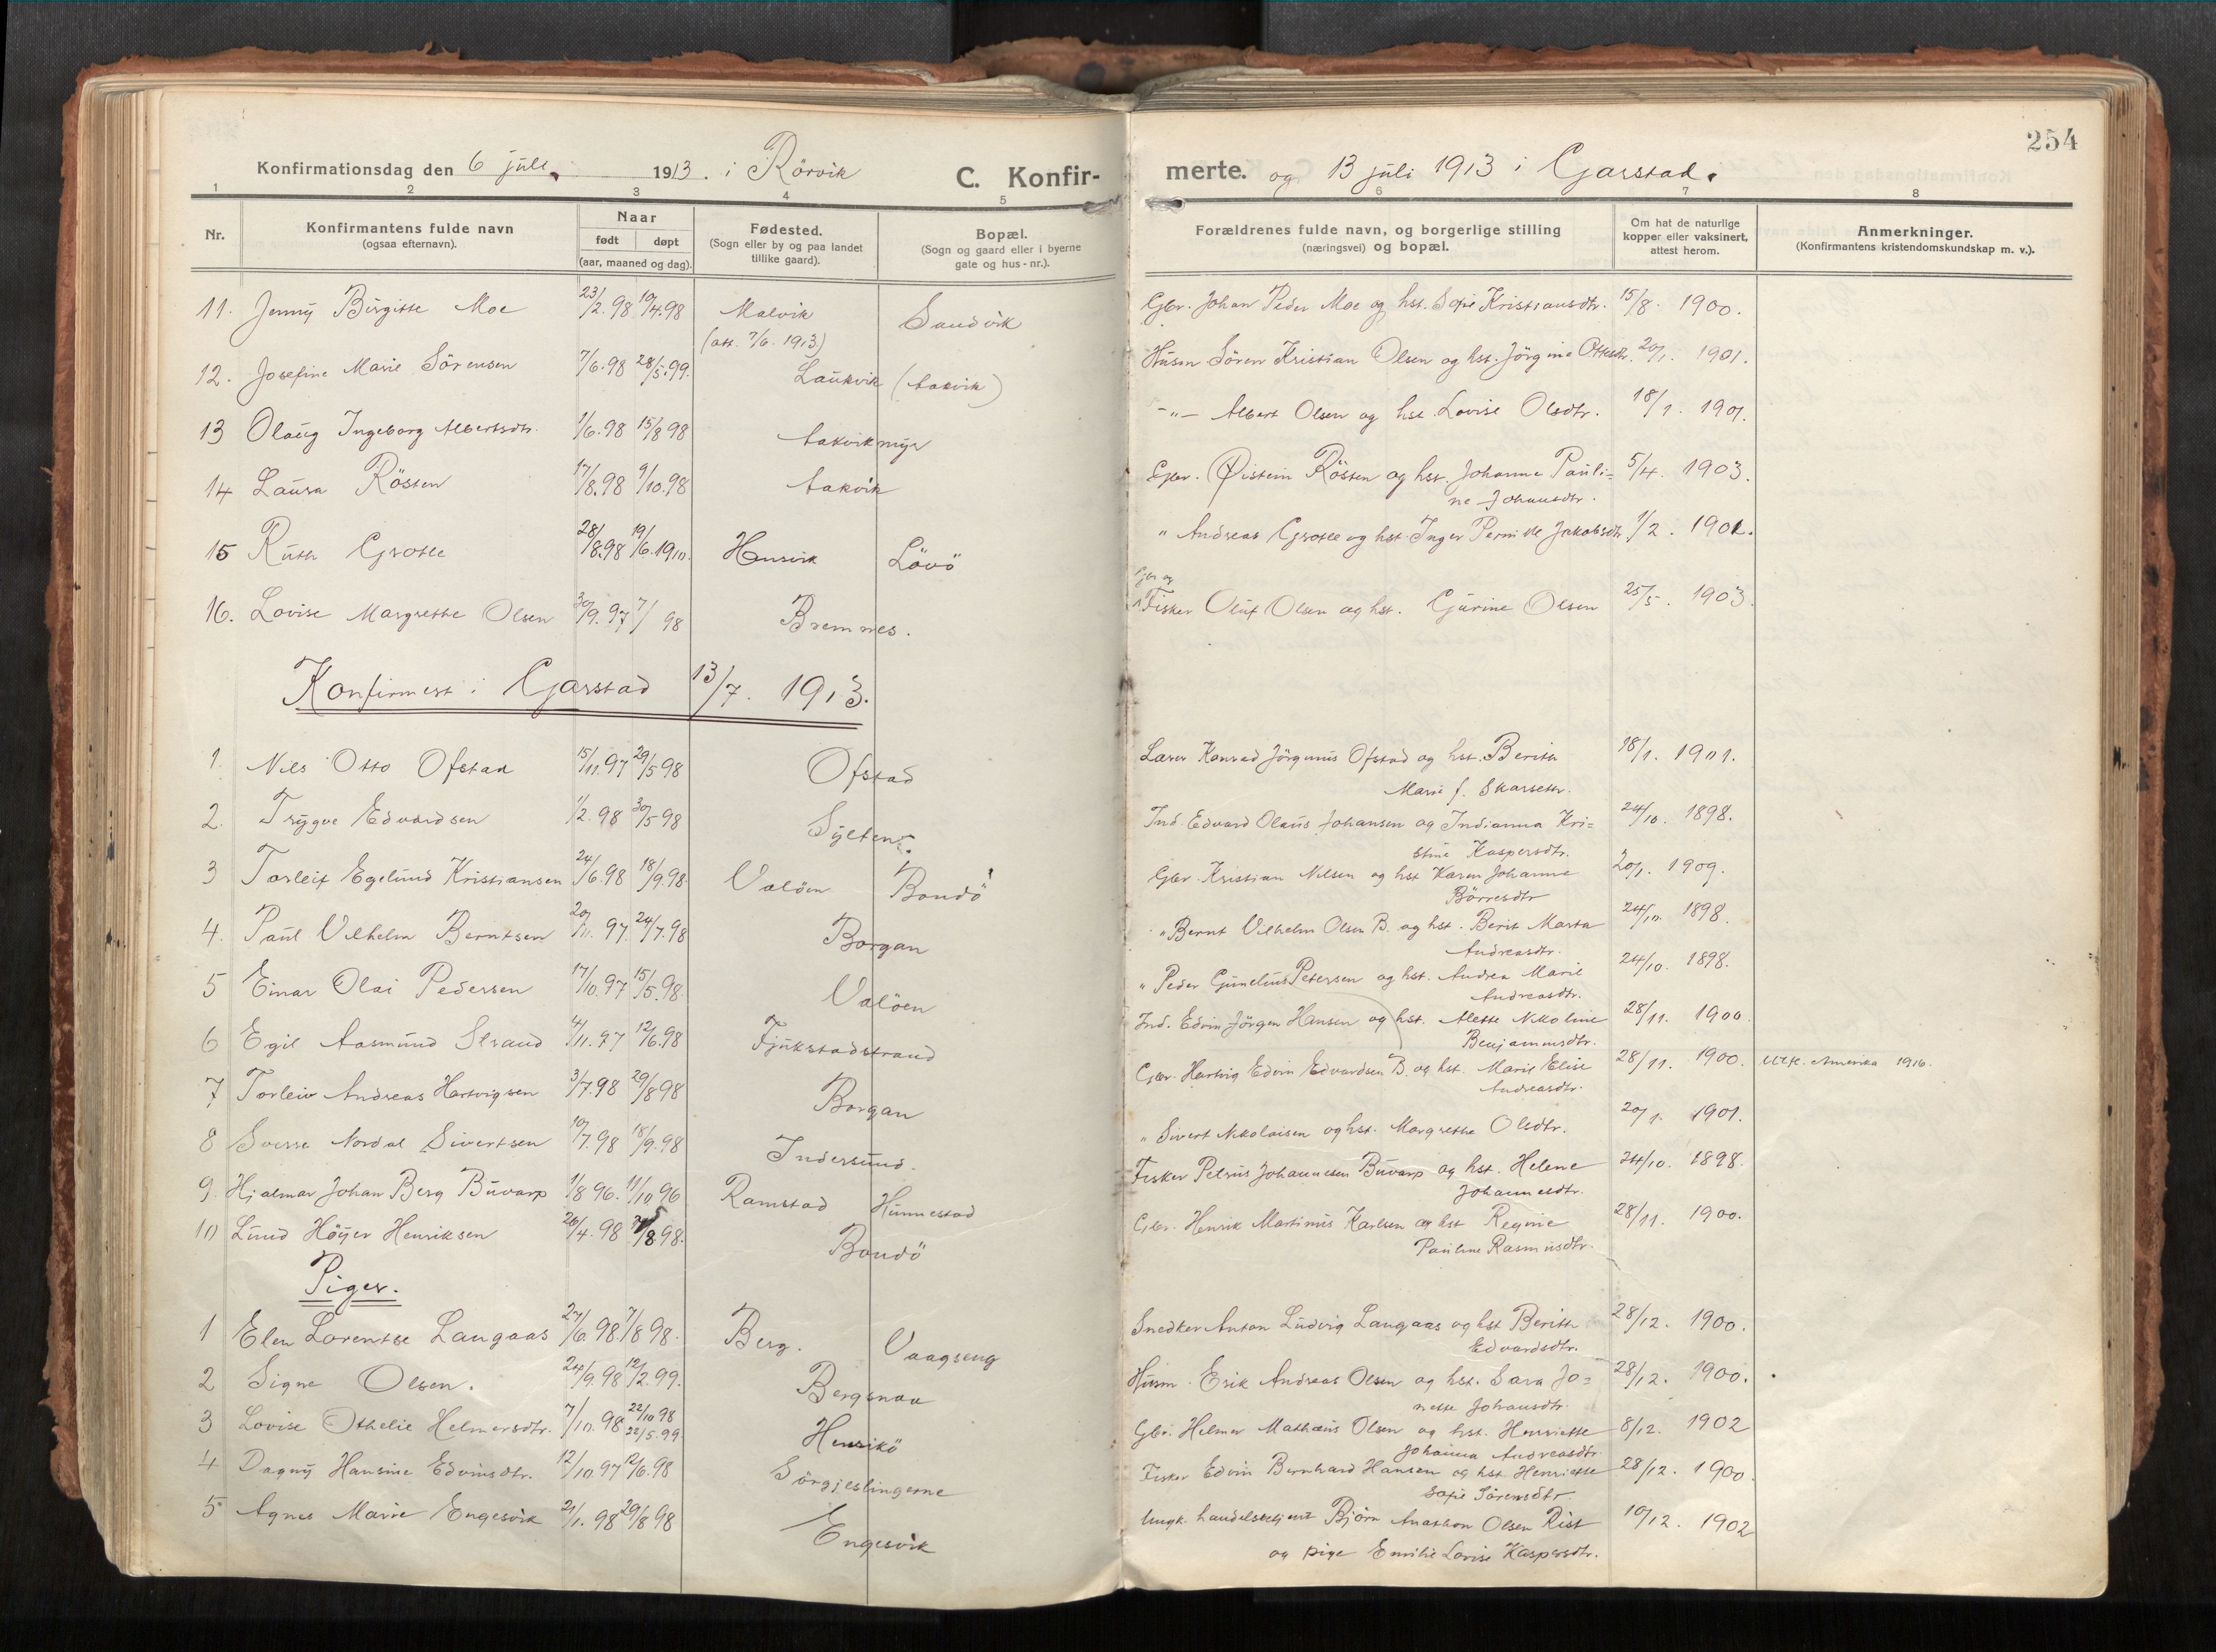 254
Konfirmationsdag den 6 juli 1913. i Rörvik
C. Konfir-
merte. og 13 juli 1913 i Garstad.
1 2 3 4 5 6 7 8
Nr.
Konfirmantens fulde navn
(ogsaa efternavn).
Naar
født døpt
(aar, maaned og dag).
Fødested.
(Sogn eller by og paa landet
tillike gaard).
Bopæl.
(Sogn og gaard eller i byerne
gate og hus-nr.).
Forældrenes fulde navn, og borgerlige stilling
(næringsvei) og bopæl.
Om hat de naturlige
kopper eller vaksinert,
attest herom.
Anmerkninger.
(Konfirmantens kristendomskundskap m. v.).
11. Jenny Birgitte Moe 23/2.98 10/4.98 Malvik Sandvik Gbr. Johan Peder Moe og hst. Sofie Kristiansdtr. 15/8. 1900.
(att. 7/6. 1913)
12. Josefine Marie Sörensen 7/6.98 28/5.99. Laukvik (Aakvik) Husm Sören Kristian Olsen og hst. Jörgine Ottesdtr. 20/1. 1901.
13 Olaug Ingeborg Albertsdtr. 1/6.98 15/8 98 Aakvikmyr -"- Albert Olsen og hst. Lovise Olsdtr. 18/1. 1901.
14 Laura Rösten 17/8.98 9/10.98 Aakvik Gbr. Øistein Rösten og hst. Johanna Pauli=
ne Johansdtr. 5/4. 1903.
15 Ruth Grotle 28/8.98 19/6.1910. Lövö " Andreas Grotle og hst. Inger Pernille Jakobsdtr 1/2. 1901.
16. Lovise Margrethe Olsen 30/9.97 7/ 98 Bremnes. Gbr og
Fisker Oluf Olsen og hst. Gurine Olsen 25/5. 1903.
Konfirmert i Garstad 13/7. 1913.
1. Nils Otto Ofstad 15/11.97 29/5 98 Ofstad Lærer Konrad Jörginus Ofstad og hst. Berith
Marie f. Skarseth. 18/1. 1901.
2. Trygve Edvardsen 1/2.98 30/5 98 Sylten. Ind. Edvard Olaus Johansen og Indianna Kri=
stine Kaspersdtr. 24/10. 1898.
3 Torleif Egelund Kristiansen 24/6.98 18/9.98. Valöen Bondö Gbr. Kristian Nilsen og hst Karen Johanne
Börresdtr 20/1. 1909.
4. Paul Vilhelm Berntsen 20/11. 97. 24/7.98 Borgan " Bernt Vilhelm Olsen B. og hst. Berit Marta
Andreasdtr. 24/10. 1898.
5 Einar Olai Pedersen 17/10.97 15/5.98. Valöen " Peder Gunelius Petersen og hst. Andrea Marie
Andreasdtr. 24/10. 1898.
6 Egil Aasmund Strand 4/11.97 12/6.98 Fjukstadstrand Ind. Edvin Jörgen Hansen og hst. Alette Nikoline
Benjaminsdtr. 28/11. 1900.
7 Torleiv Andreas Hartvigsen 3/7.98 29/8 98 Borgan Gbr. Hartvig Edvin Edvardsen B. og hst. Marie Elise
Andreasdtr. 28/11. 1900. Utfl. Amerika 1916.
8 Sverre Nordal Sivertsen 10/7.98 18/9.98 Indersund. " Sivert Nikolaisen og hst. Margrethe Olsdtr. 20/1. 1901.
9. Hjalmar Johan Berg Buvarp 1/8 96. 11/10 96 Ramstad Hunnestad Fisker Petrus Johannesen Buvarp og hst. Helene
Johannesdtr. 24/10. 1898.
10 Lund Höyer Henriksen 26/4.98 /8.98. Bondö Gbr. Henrik Martinus Karlsen og hst Regine
Pauline Rasmusdtr. 28/11. 1900.
Piger.
1 Elen Lorentse Langaas 27/6 98. 7/8 98. Berg. Vaagseng Snedker Anton Ludvig Langaas og hst Berith
Edvardsdtr. 28/12. 1900.
2 Signe Olsen. 24/9.98 12/2.99. Bergsnau Husm. Erik Andreas Olsen og hst. Sara Jo=
nette Johansdtr. 28/12. 1900.
3 Lovise Othelie Helmersdtr. 7/10.98 22/10 98
22/5.99 Henrikö Gbr. Helmer Mathæus Olsen og hst. Henriette
Johanna Andreasdtr. 8/12. 1902
4 Dagny Hansine Edvinsdtr. 12/10.97 12/6.98 Sörgjeslingerne Fisker Edvin Bernhard Hansen og hst. Henriette
Sofie Sörensdtr. 28/12. 1900.
5 Agnes Marie Engesvik 21/1. 98 29/8 98 Engesvik Ungk. handelsbetjent Björn Anathon Olsen Rist
og pige Emilie Lovise Kaspersdtr. 10/12. 1902